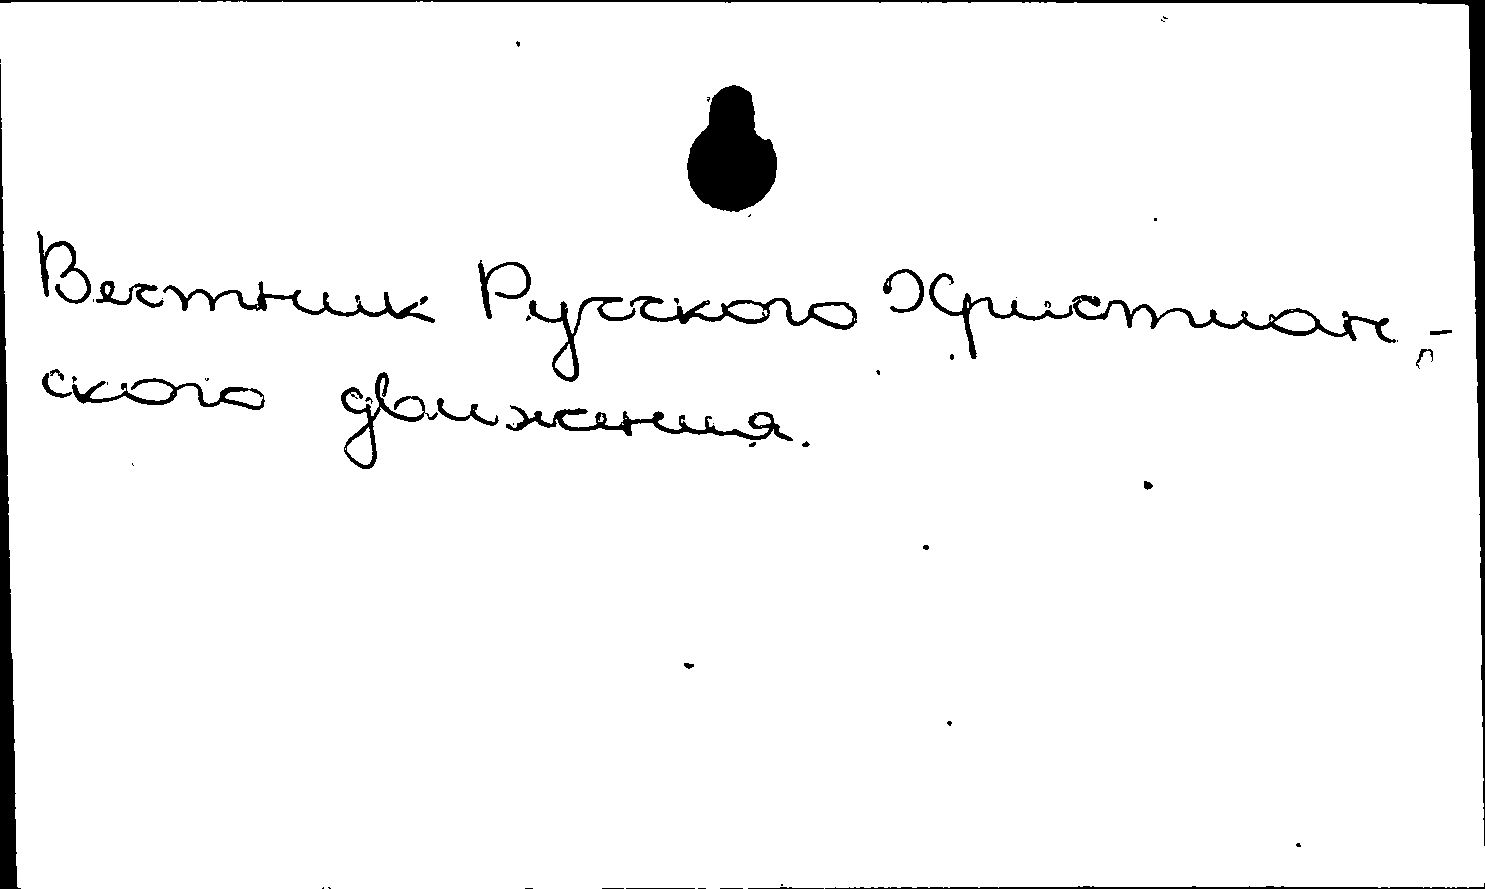 Вестник Русского Христиан-
ского движения.